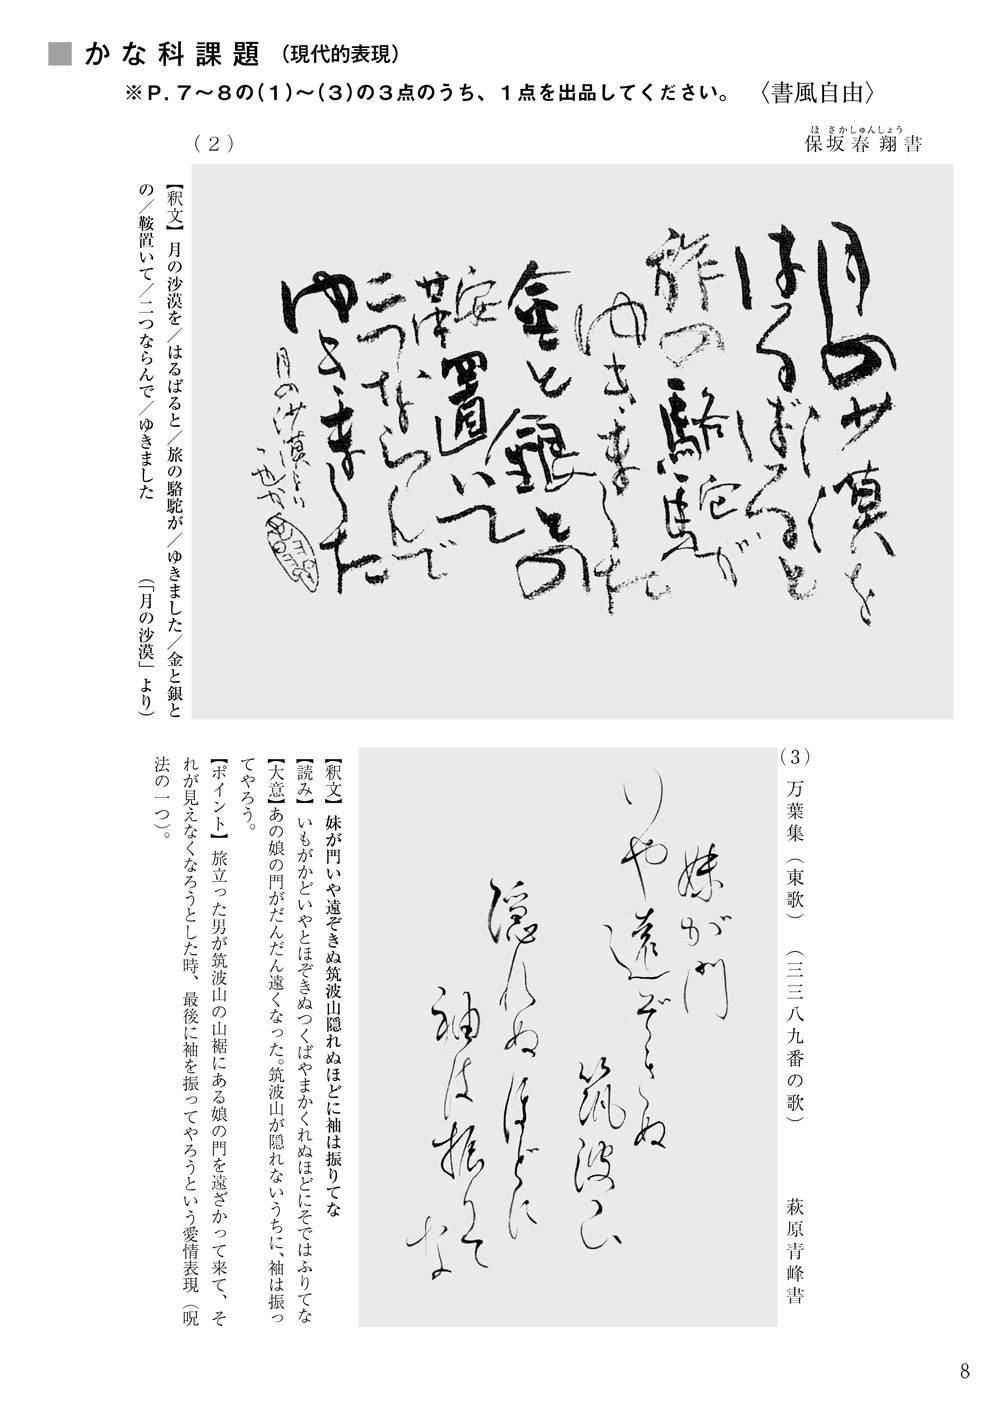 かな科課題（現代的表現）
※P.７～８の（１）～（３）の３点のうち、１点を出品してください。　〈書風自由〉
（２）
ほさかしゅんしょう
保坂春翔書
月の沙漠を
はるばると
旅の駱駝が
ゆきました
金と銀との
鞍置いて
二つならんで
ゆきました
月の沙漠より
【釈文】月の沙漠を／はるばると／旅の駱駝が／ゆきました／金と銀と
の／鞍置いて／二つならんで／ゆきました　（「月の沙漠」より）
（３）　万葉集（東歌）　（三三八九番の歌）　萩原青峰書
妹が門
いや遠ぞきぬ
筑波山
隠れぬほどに
袖は振りて
な
【釈文】妹が門いや遠ぞきぬ筑波山隠れぬほどに袖は振りてな
【読み】いもがかどいやとほぞきぬつくばやまかくれぬほどにそではふりてな
【大意】あの娘の門がだんだん遠くなった。筑波山が隠れないうちに、袖は振っ
てやろう。
【ポイント】旅立った男が筑波山の山裾にある娘の門を遠ざかって来て、そ
れが見えなくなろうとした時、最後に袖を振ってやろうという愛情表現（呪
法の一つ）。
8